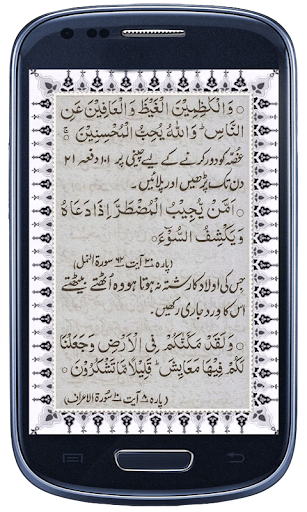 وَالْكٰظِمِيْنَ الْغَيْظَ وَالْعَافِيْنَ عَنِ
النَّاسِ ؕ وَاللّٰهُ يُحِبُّ الْمُحْسِنِيْنَ
غصّہ کو دور کرنے کے لیے چینی پر ۱۰۱ دفعہ ۲۱
دن تک پڑھیں اور پلائیں۔
اَمَّنْ يُّجِيْبُ الْمُضْطَرَّ اِذَا دَعَاهُ
وَيَكْشِفُ السُّوْٓءَ
(پارہ ۲۰ آیت ۶۲ سورۃ النمل)
جس کی اولاد کا رشتہ نہ ہوتا ہو وہ اُٹھتے بیٹھتے
اس کا ورد جاری رکھیں۔
وَلَقَدْ مَكَّنّٰكُمْ فِى الْاَرْضِ وَجَعَلْنَا
لَكُمْ فِيْهَا مَعَايِشَ ؕ قَلِيْلًا مَّا تَشْكُرُوْنَ
(پارہ ۸ آیت ۱۰ سُورۃ الاعراف)